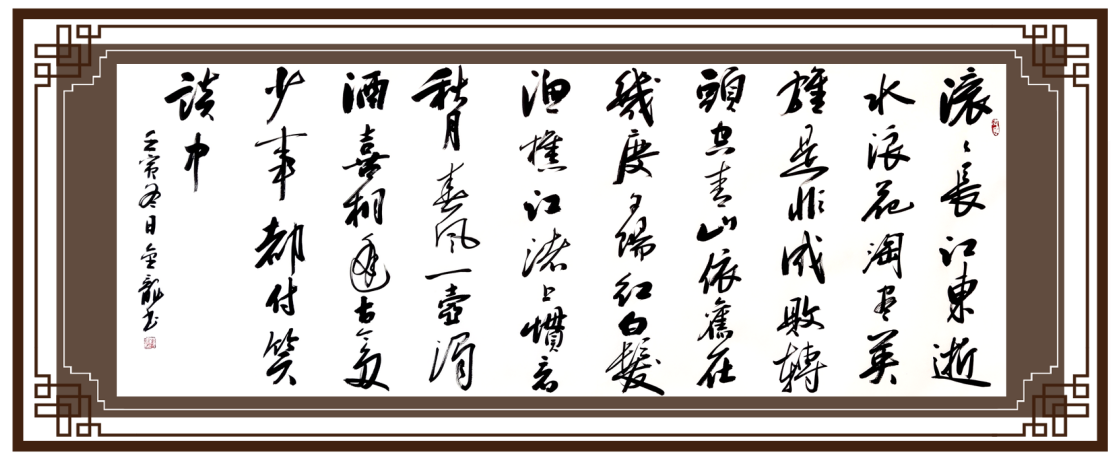 滚〻長江東逝
水浪花淘尽英
雄是非成敗轉
頭空青山依舊在
幾度夕陽紅白髮
渔樵江渚上慣看
秋月春風一壺濁
酒喜相逢古今多
少事都付笑
談中
壬寅冬日金龍书